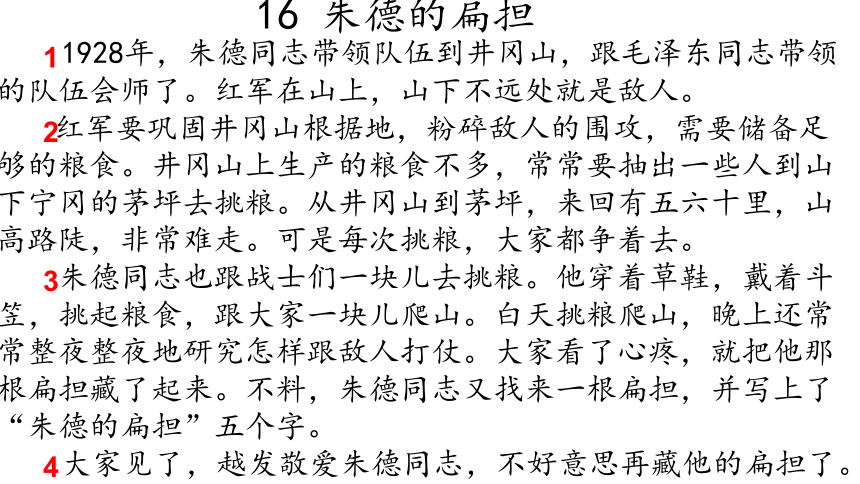 16 朱德的扁担
1 1928年，朱德同志带领队伍到井冈山，跟毛泽东同志带领
的队伍会师了。红军在山上，山下不远处就是敌人。
2 红军要巩固井冈山根据地，粉碎敌人的围攻，需要储备足
够的粮食。井冈山上生产的粮食不多，常常要抽出一些人到山
下宁冈的茅坪去挑粮。从井冈山到茅坪，来回有五六十里，山
高路陡，非常难走。可是每次挑粮，大家都争着去。
3 朱德同志也跟战士们一块儿去挑粮。他穿着草鞋，戴着斗
笠，挑起粮食，跟大家一块儿爬山。白天挑粮爬山，晚上还常
常整夜整夜地研究怎样跟敌人打仗。大家看了心疼，就把他那
根扁担藏了起来。不料，朱德同志又找来一根扁担，并写上了
“朱德的扁担”五个字。
4 大家见了，越发敬爱朱德同志，不好意思再藏他的扁担了。